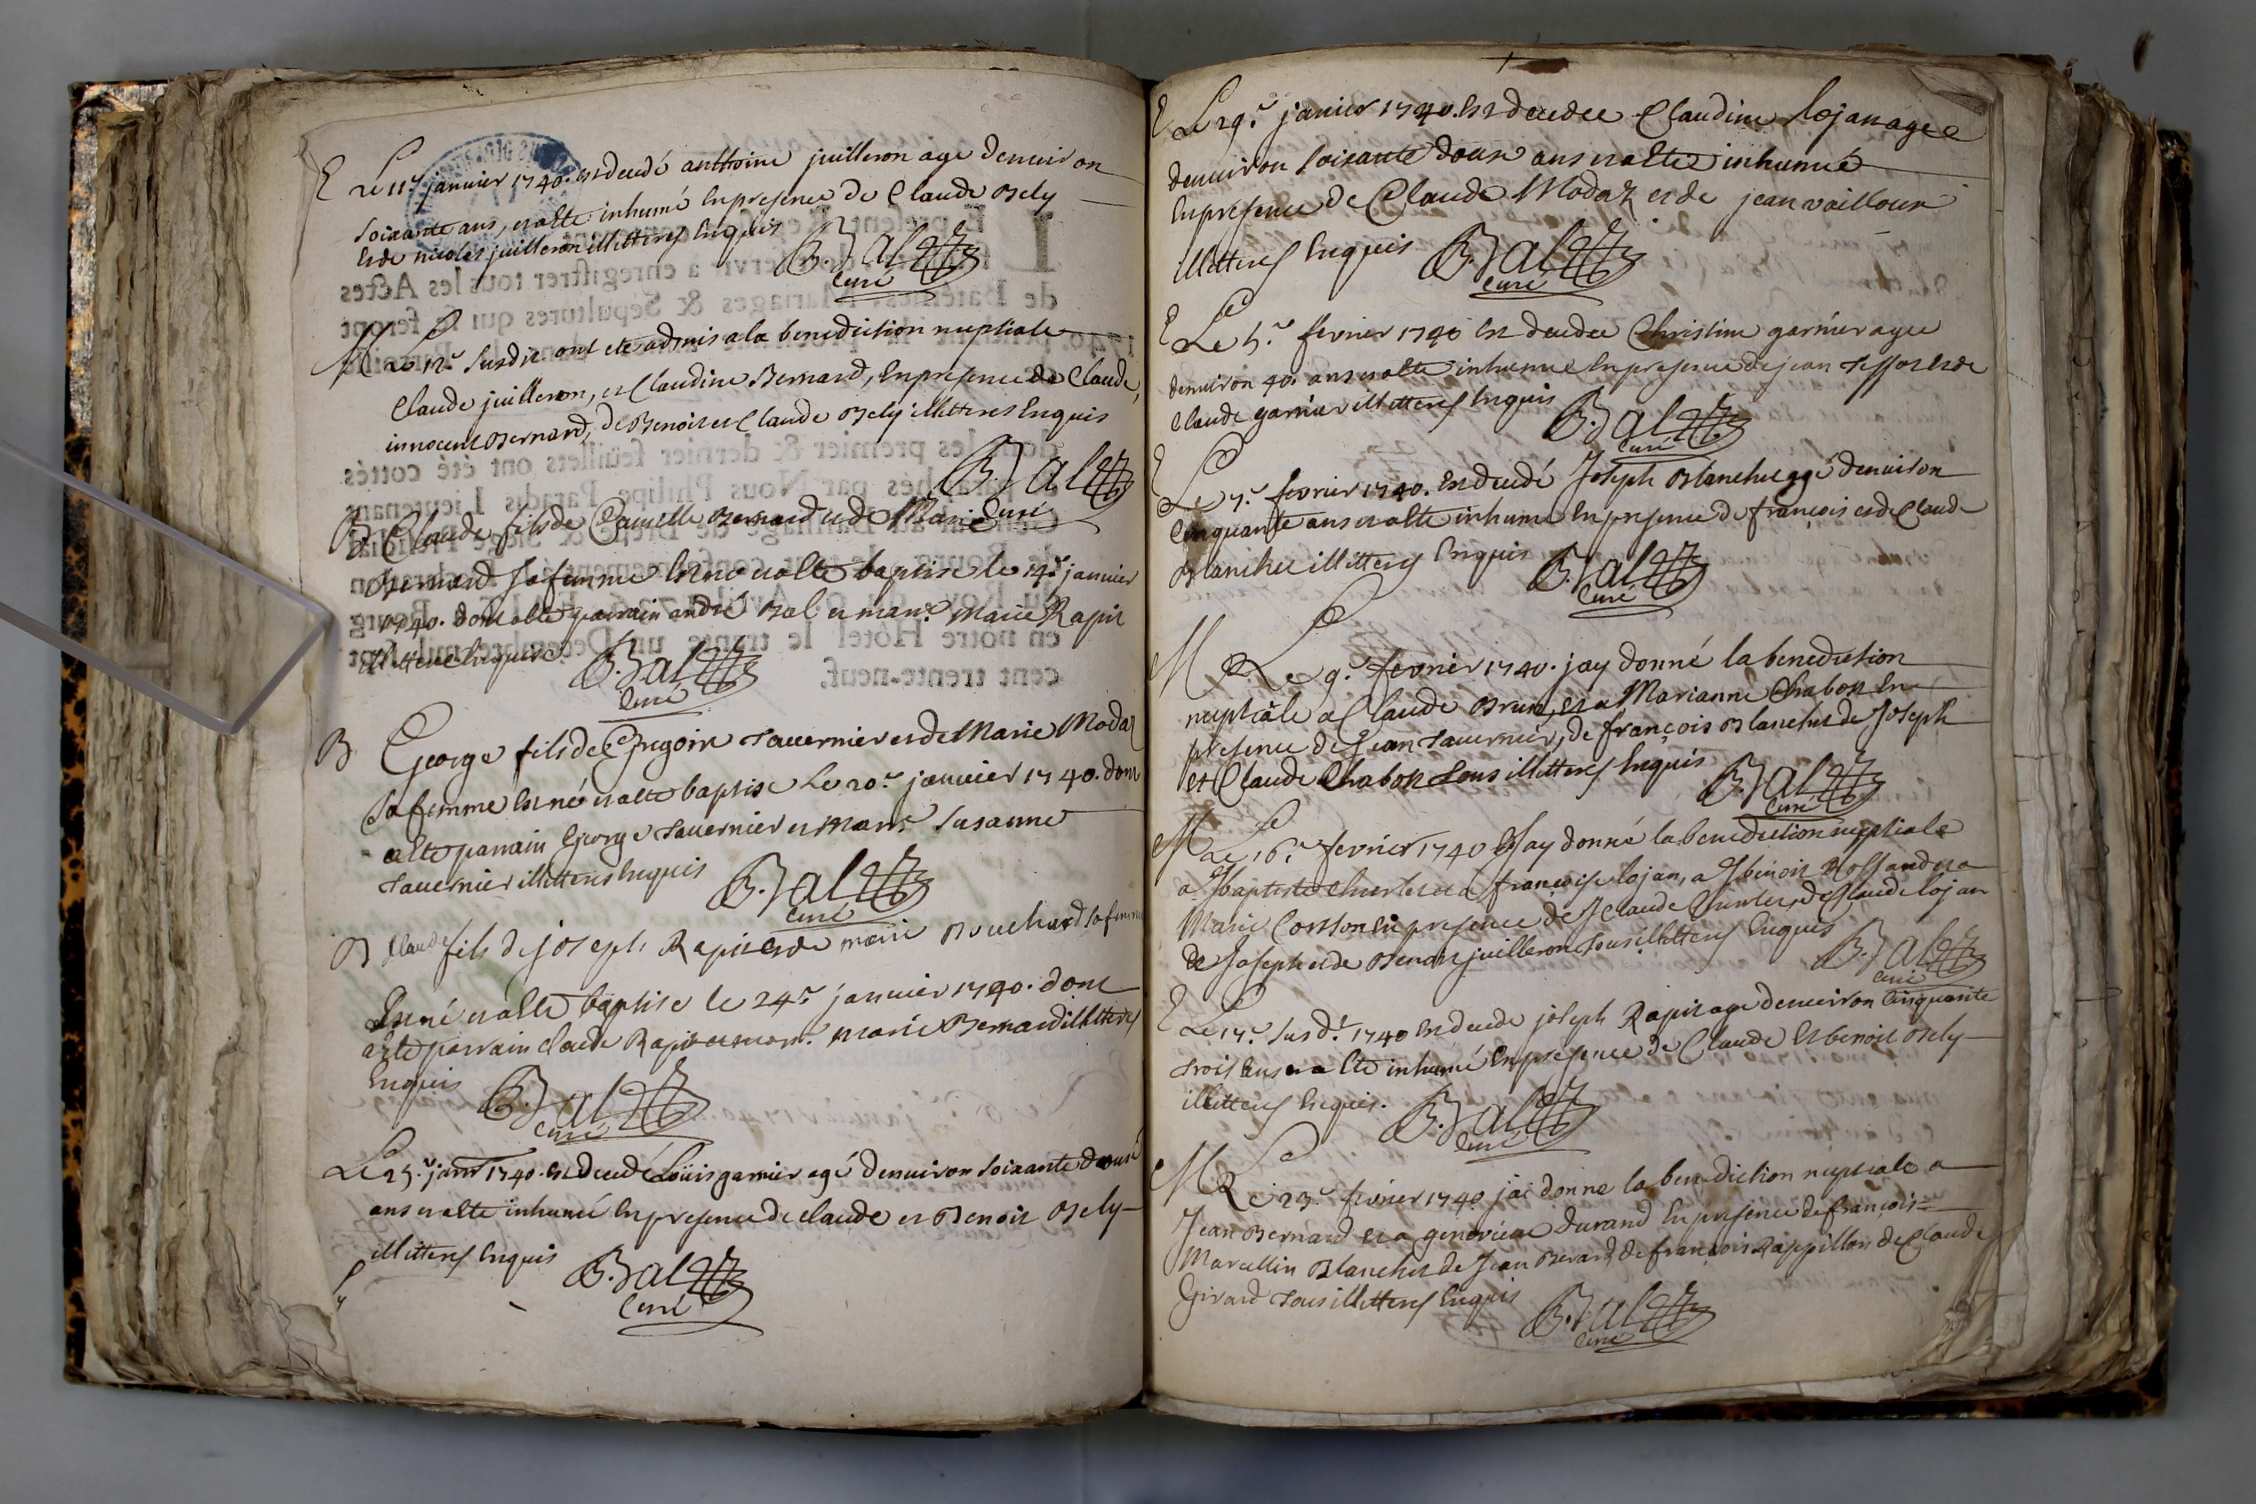 E Le 11e janvier 1740. est decedé anthoine juilleron age denuiron
soixante ans, et a eté inhumé en presence de Claude Bely
et de nicolas juilleron illitteres Enquis
B. Bal
Curé
M Le 12e susdit ont eté admis a la benediction nuptiale
Claude juilleron, et Claudine Bernard, En presence de Claude,
innocent Bernard, de Benoit et Claude Bely illitteres Enquis
B. Bal
Curé
B Claude fils de Camille Bernard et de Marie
Bernard sa femme Est né et a eté baptise le 14e janvier
1740. dont a eté parrain andré Bal et marr.e Marie Rapit
illitteré Enquise
B. Bal
Curé
B George fils de Gregoire Tauernier et de Marie Modas
sa femme Est né et a eté baptise Le 20e janvier 1740. dont
a eté parrain George Tauernier et marr.e Susanne
Tauernier illitteres Enquis
B. Bal
Curé
B Claude fils de joseph Rapit et de marie Bouchard sa femme
Est né et a eté baptise le 24e janvier 1740. dont
a eté parrain claude Rapit et marr.e marie Bernard illitteres
Enquis
B. Bal
Curé
Le 25e janr 1740. est decedé Loüis garnier agé denuiron soixante douze
ans et a eté inhumé En presence de claude et Benoit Bely
illitteres Enquis
B. Bal
Curé
E Le 29e janvier 1740. Est decedee Claudine lojan agee
denuiron soixante douze ans et a eté inhumée
En presence de Claude Modaz et de jean vailloux
illitteres Enquis
B. Bal
Curé
E Le 5e fevrier 1740 Est decedee Christine garnier agee
denuiron 40. ans et a eté inhumee En presence de jean et de
Claude garnier illitteres Enquis
B. Bal
Curé
E Le 7e fevrier 1740. Est decedé Joseph Blanchet agé denuiron
Cinquante ans et a eté inhumé En presence de françois et de Claude
Blanchet illitteres Enquis
B. Bal
Curé
M Le 9e fevrier 1740. jay donné la benediction
nuptiale a Claude Brun, et a Marianne Chabot En
presence de Jean Tauernier, de françois Blanchet de Joseph
et Claude Chabot Tous illitteres Enquis
B. Bal
Curé
M Le 16e fevrier 1740 Jay donné la benediction nuptiale
a Jbaptiste et a françoise lojan, a Jbenoit Rossand et a
Marie En presence de Jclaude de Claude lojan
de Joseph et de Benoit juilleron Tous illitteres Enquis
B. Bal
Curé
E Le 17e susd.t 1740 Est decedé joseph Rapit age denuiron Cinquante
Trois ans et a eté inhumé En presence de Claude Et benoit Bely
illitteres Enquis.
B. Bal
Curé
M Le 23e fevrier 1740. jai donne la benediction nuptiale a
Jean Bernard et a genevieve durand En presence de françois
Marcellin Blanchet de Jean Berard de françois Rappillon de Claude
Girard Tous illitteres Enquis
B. Bal
Curé